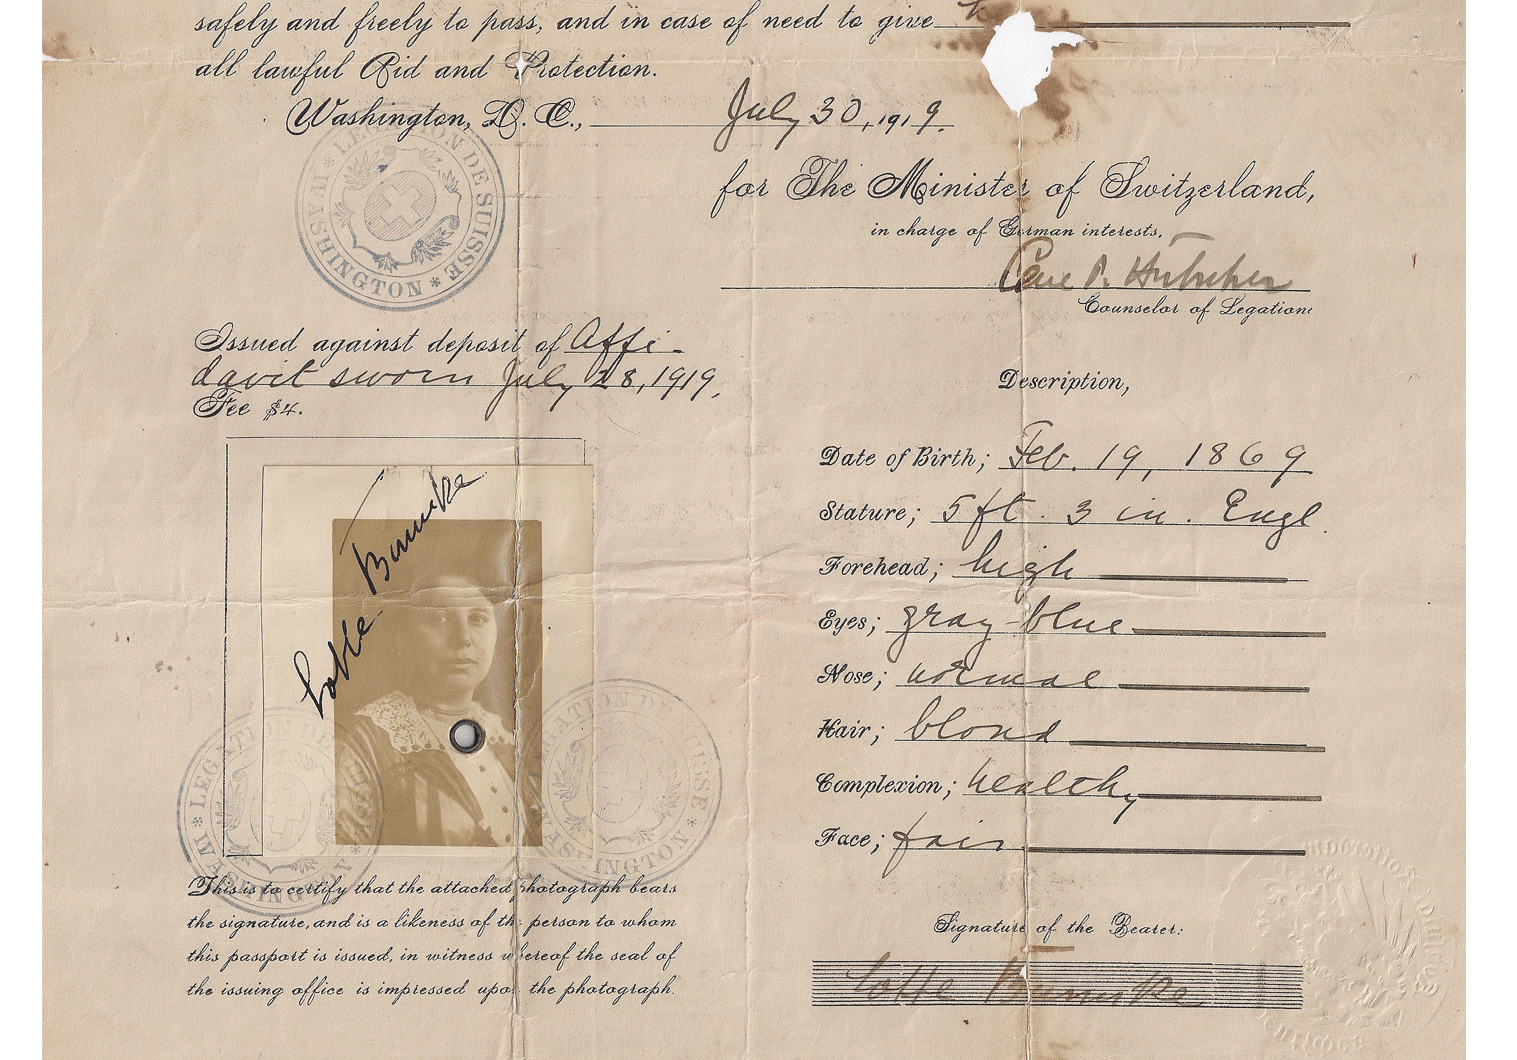 safely and freely to pass, and in case of need to give
all lawful Aid and Protection.
Washington, D. C., July 30, 1919.
LEGATION DE SUISSE
* WASHINGTON *
for The Minister of Switzerland,
in charge of German interests.
Counselor of Legation
Issued against deposit of Affi-
davit sworn July 28, 1919.
Fee $4.
Description,
Date of Birth; Feb. 19, 1869
Stature; 5 ft. 3 in. Engl.
Forehead; high
Eyes; gray-blue
Nose; normal
Hair; blond
Complexion; healthy
Face; fair
Lotte
LEGATION DE SUISSE
* WASHINGTON *
LEGATION DE SUISSE
WASHINGTON *
This is to certify that the attached photograph bears
the signature, and is a likeness of the person to whom
this passport is issued, in witness whereof the seal of
the issuing office is impressed upon the photograph.
Signature of the Bearer:
Lotte